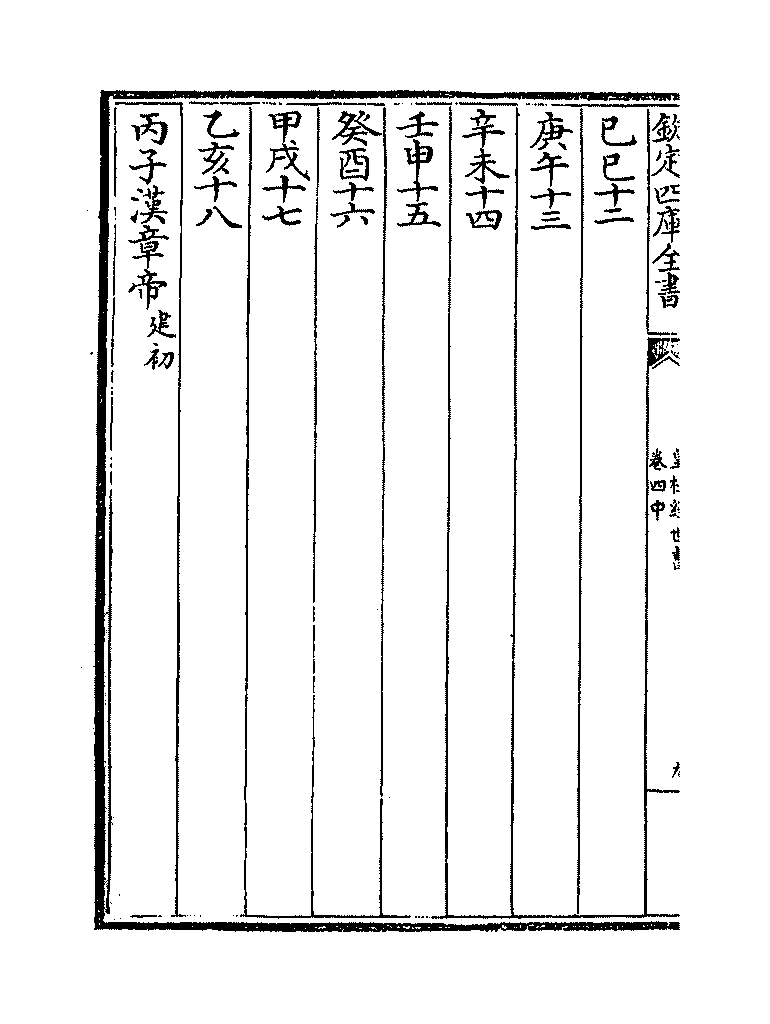 欽定四庫全書
皇極經世書
卷四中
九
己巳十二
庚午十三
辛未十四
壬申十五
癸酉十六
甲戌十七
乙亥十八
丙子漢章帝建初